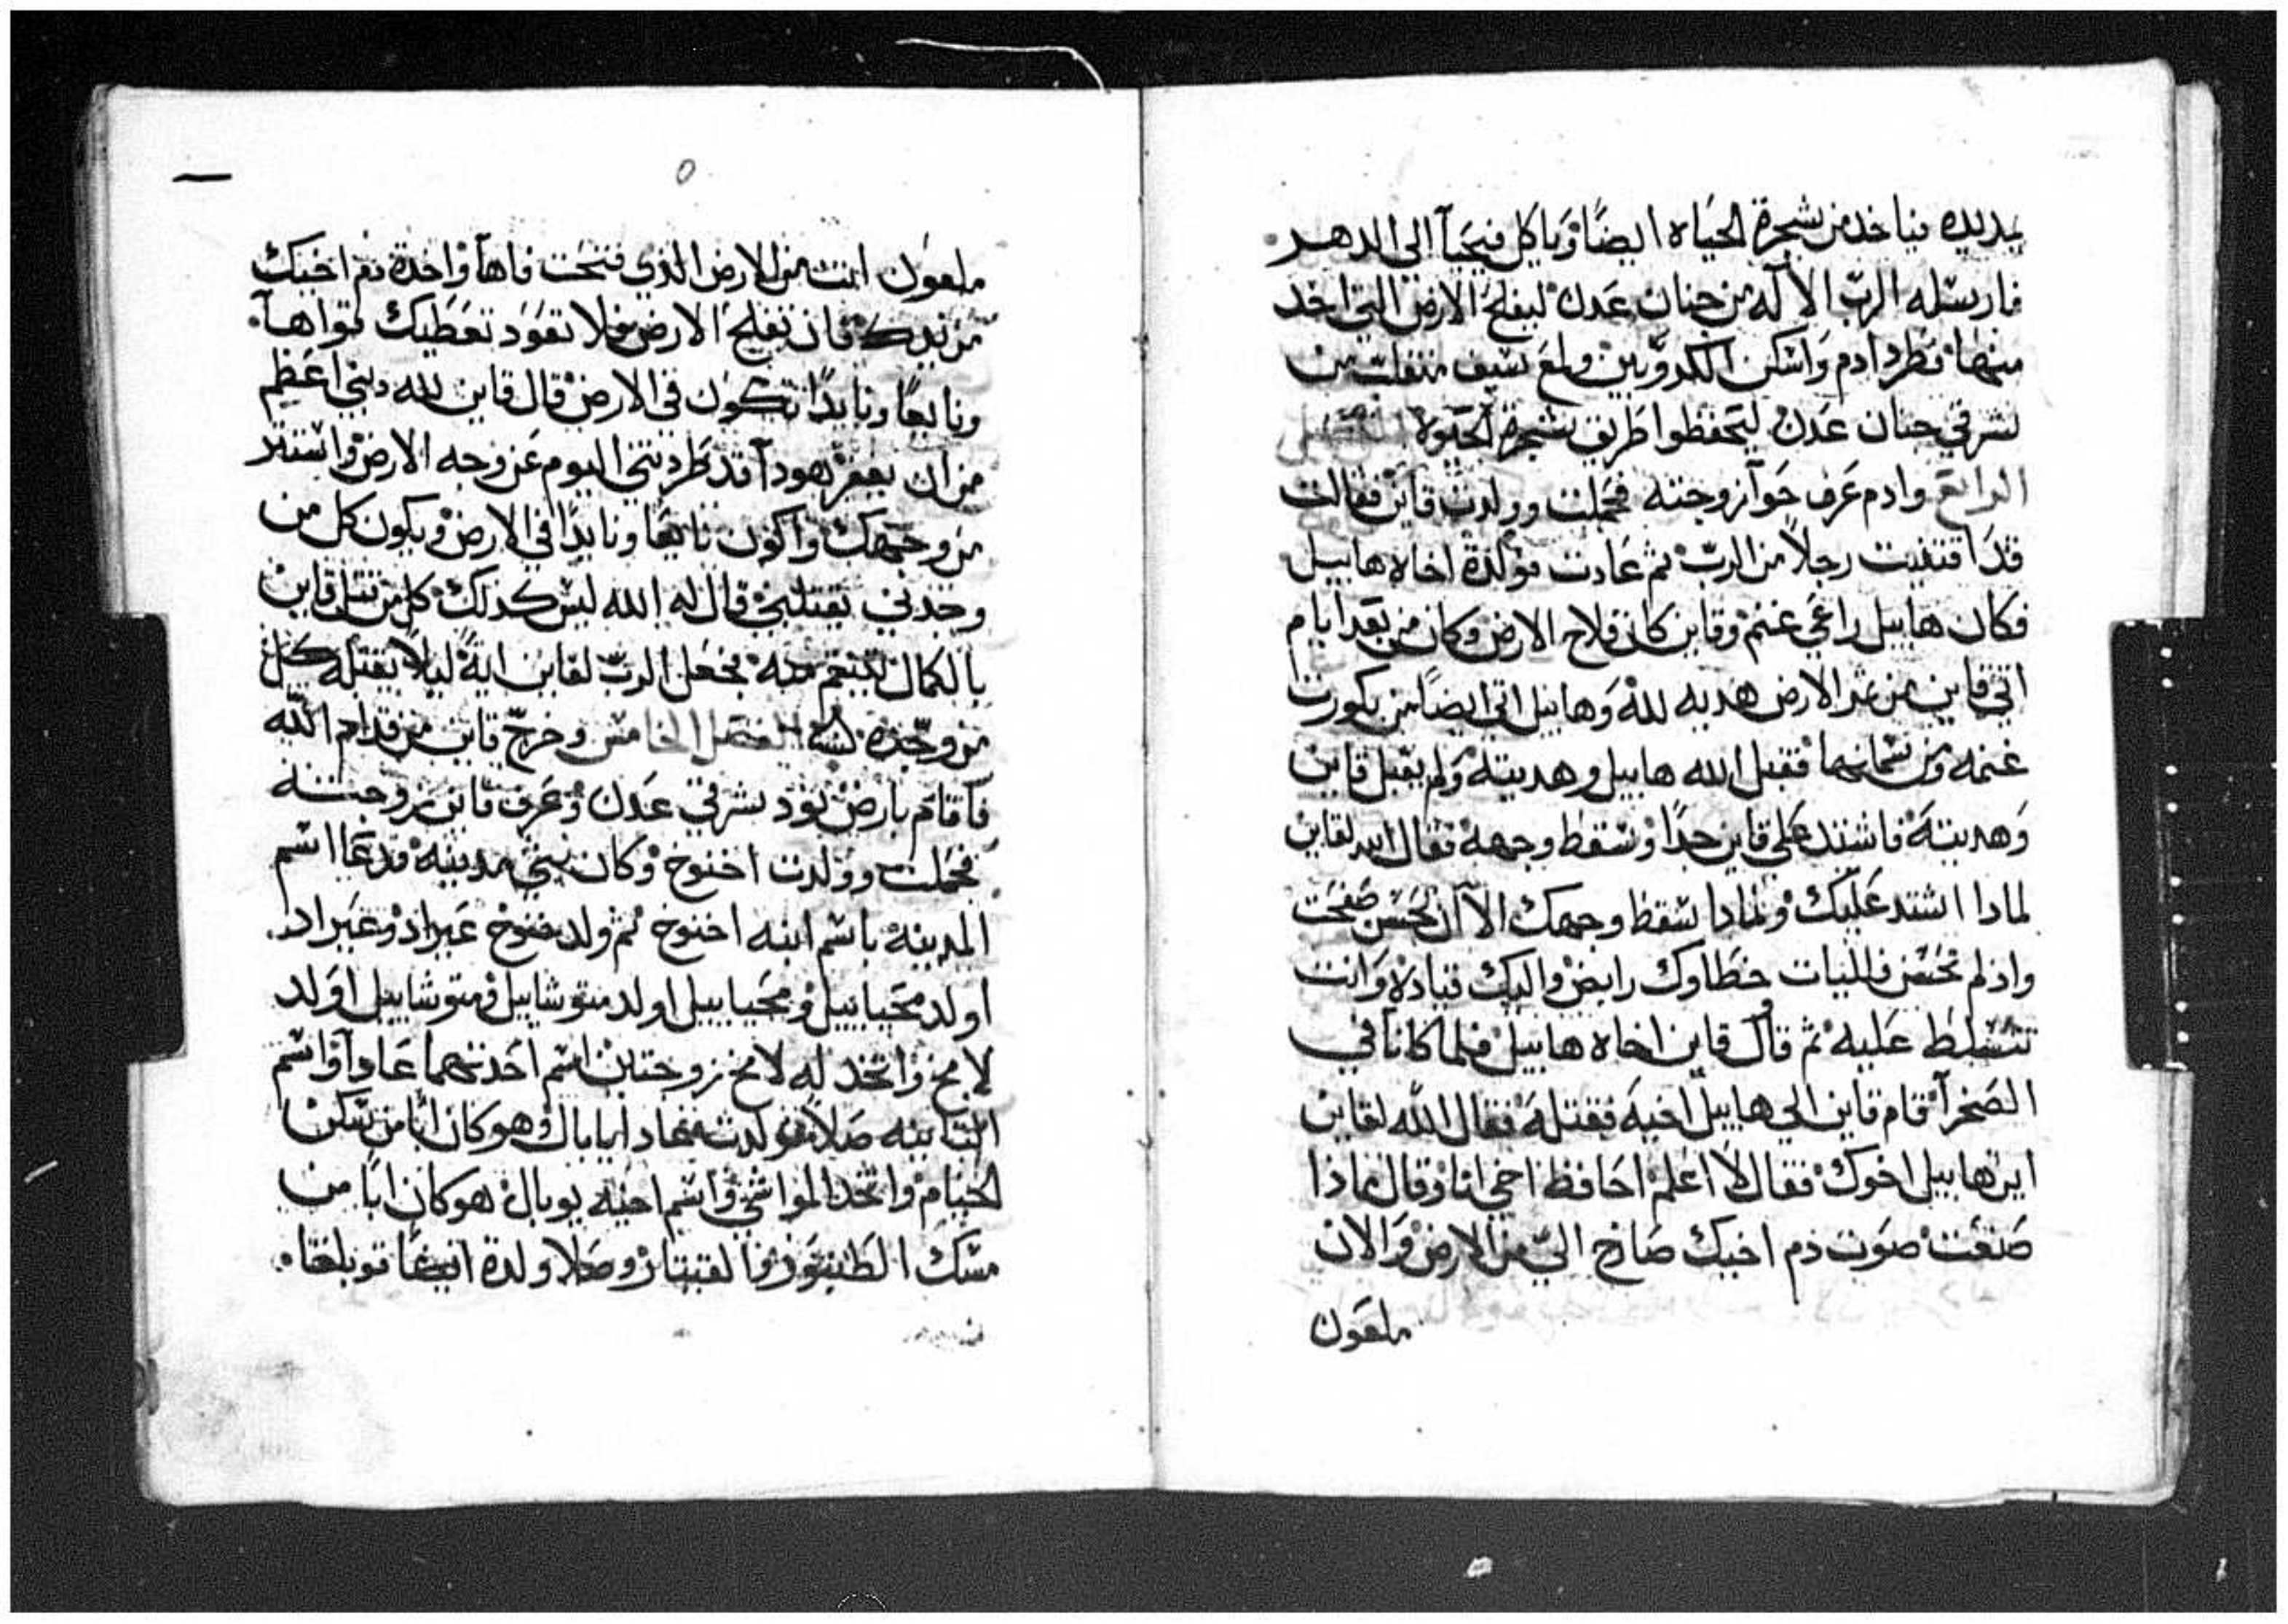 يديده فياخد من شجرة الحياه ايضًا وياكل فيحيآ الى الدهر
فارسله الرب الاله من جنان عدن ليفلح الارض التي اخد
منها فطرد ادم واسكن الكروبين ولمع سيف منقلب من
شرقي جنان عدن ليحفظوا طريق شجرة الحيوة
الرابع وادم عرف حوآ زوجته فحملت وولدت قاين فقالت
قد اقتنيت رجلاً من الرب ثم عادت فولدة اخاه هابيل
فكان هابيل راعي غنم وقاين كان فلاح الارض وكان من بعد ايام
اتي قاين من ثمر الارض هديه لله وهابيل اتي ايضًا من بكورت
غنمه ومن سمانهما فقبل الله هابيل وهديته ولم يقبل قاين
وهديته فاشتد علي قاين جدًا وسقط وجهه فقال الله لقاين
لمادا اشتد عليك ولمادا سقط وجهك الاآن تحسن صفحت
واذ لم تحسن فللباب خطاوك رابض واليك قياده وانت
تتسلط عليه ثم قال قاين اخاه هابيل فلما كانا في
الصحرآ قام قاين الي هابيل اخيه فقتله فقال الله لقاين
اين هابيل اخوك فقال لا اعلم احافظ اخي انا وقال ماذا
صنعت صوت دم اخيك صارخ اليّ من الارض والان
ملعون
٥
ملعون انت من الارض الذي فتحت فاهآ واخدة دم اخيك
من يدك فان تفلح الارض فلا تعود تعطيك قواهآ
ونايعًا ونايدًا تكون في الارض قال قاين لله دنبي اعظم
من ان يغفر هودآ قد طردتني اليوم عن وجه الارض واستتر
من وجهك واكون نايعًا ونايدًا في الارض ويكون كل من
وجدني يقتلني قال له الله ليس كدلك كل من قتل قاين
بالكمال ينتقم منه فجعل الرب لقاين ايةً ليلا يقتله كل
من وجده الفصل الخامس وخرج قاين من قدام الله
فاقام بارض نود شرقي عدن وعرف قاين زوجته
فحملت وولدت اخنوخ وكان يبني مدينه فدعا اسم
المدينه باسم ابنه اخنوخ ثم ولد خنوخ عيراد وعيراد
اولد محياييل ومحياييل اولد متوشاييل ومتوشاييل اولد
لامخ واتخد له لامخ زوجتين اسم احدتهما عادآ واسم
التانيه صلا فولدت عادا ياباك وهو كان ابًا من سكن
الخيام واتخد المواشي واسم اخيه يوبال هو كان ابًا من
مسك الطنبور والقيتار وصلا ولدة ايضًا توبلقا